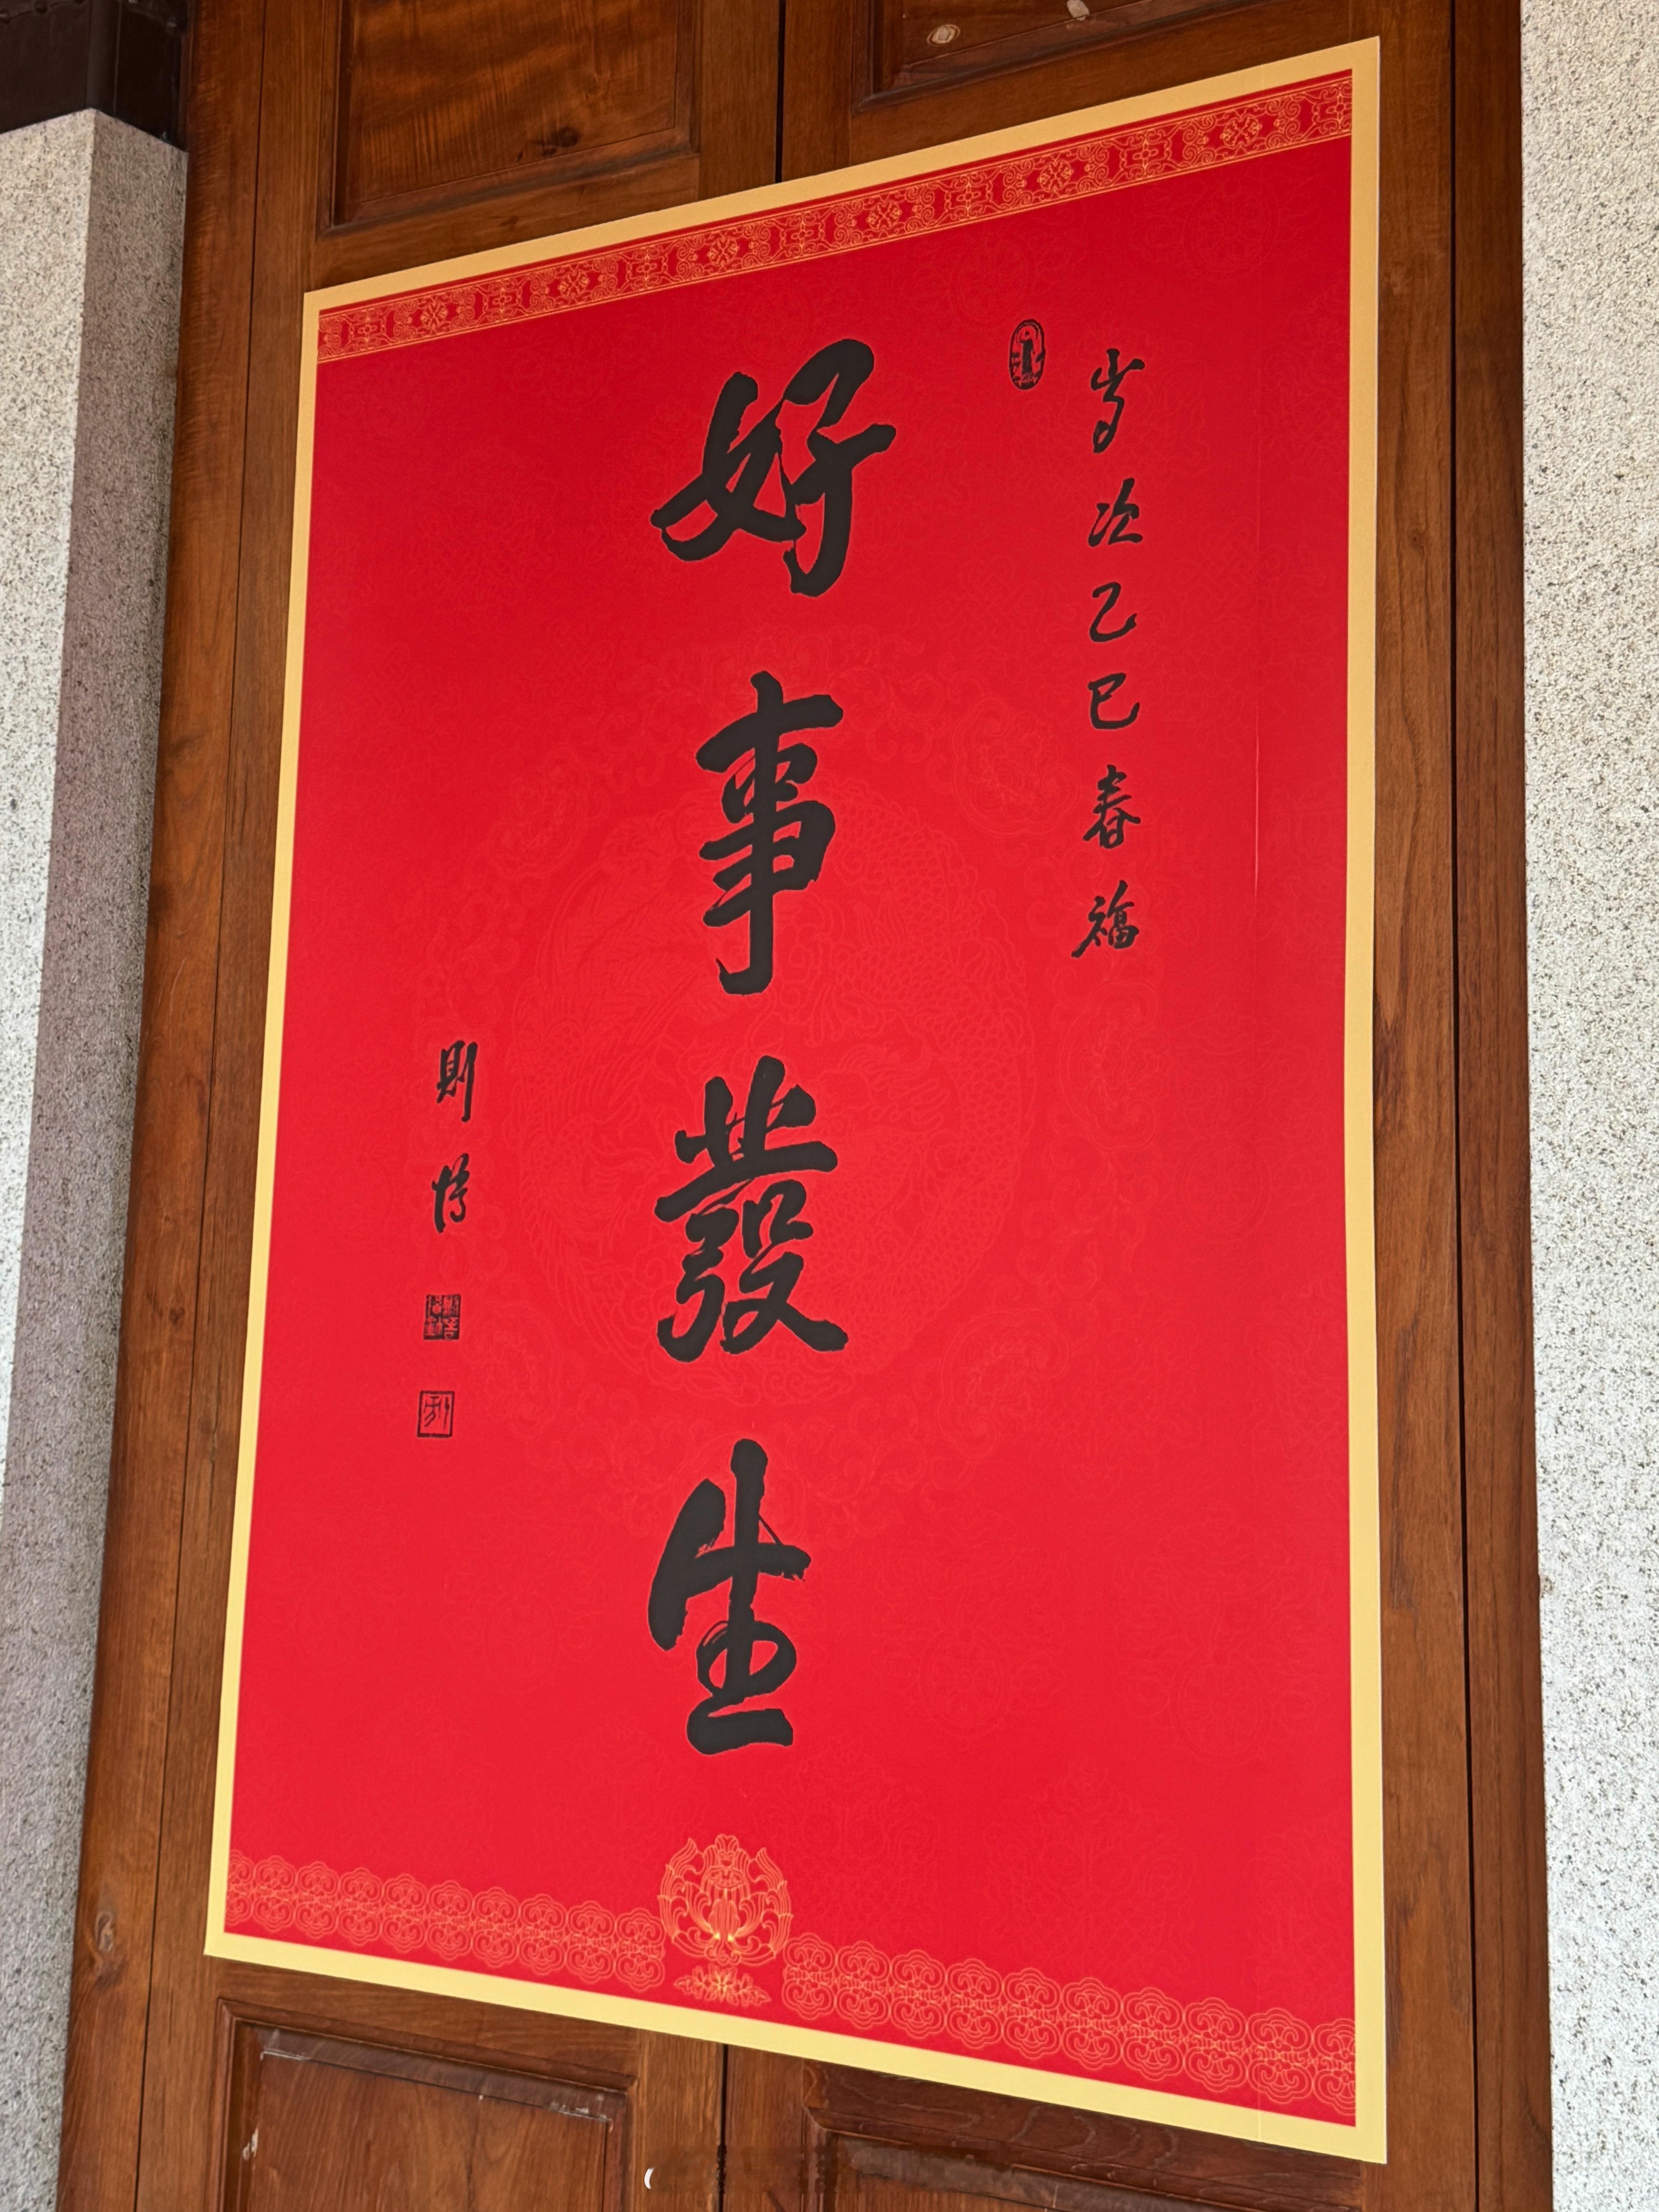 歲次乙巳春福
好事發生
則悟